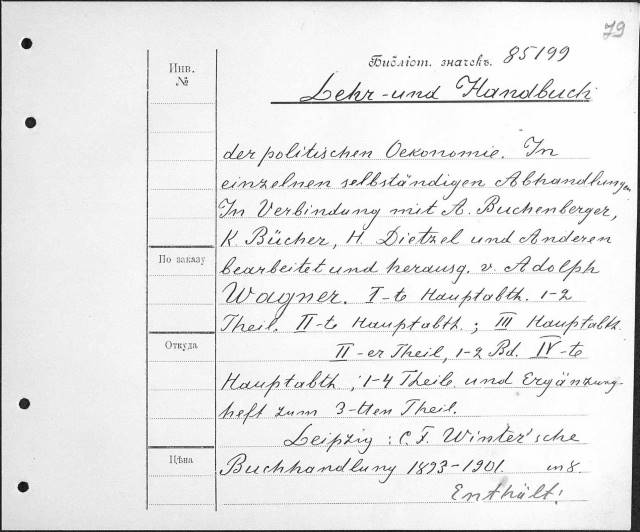 79
Инв. №
Библіот. значекъ. 85199
Lehr- und Handbuch
der politischen Oekonomie. In
einzelnen selbständigen Abhandlungen
In Verbindung mit A. Buchenberger,
K. Bücher, H. Dietzel und Anderen
По заказу
bearbeitet und herausg. v. Adolph
Wagner. I-te Hauptabth. 1-2
Theil. II-te Hauptabth.; III Hauptabth.
Откуда
II-er Theil, 1-2 Bd. IV-te
Hauptabth.; 1-4 Theile und Ergänzung-
heft zum 3-tten Theil.
Leipzig: C. F. Winter'sche
Цѣна
Buchhandlung 1893-1901. in 8.
Enthält: